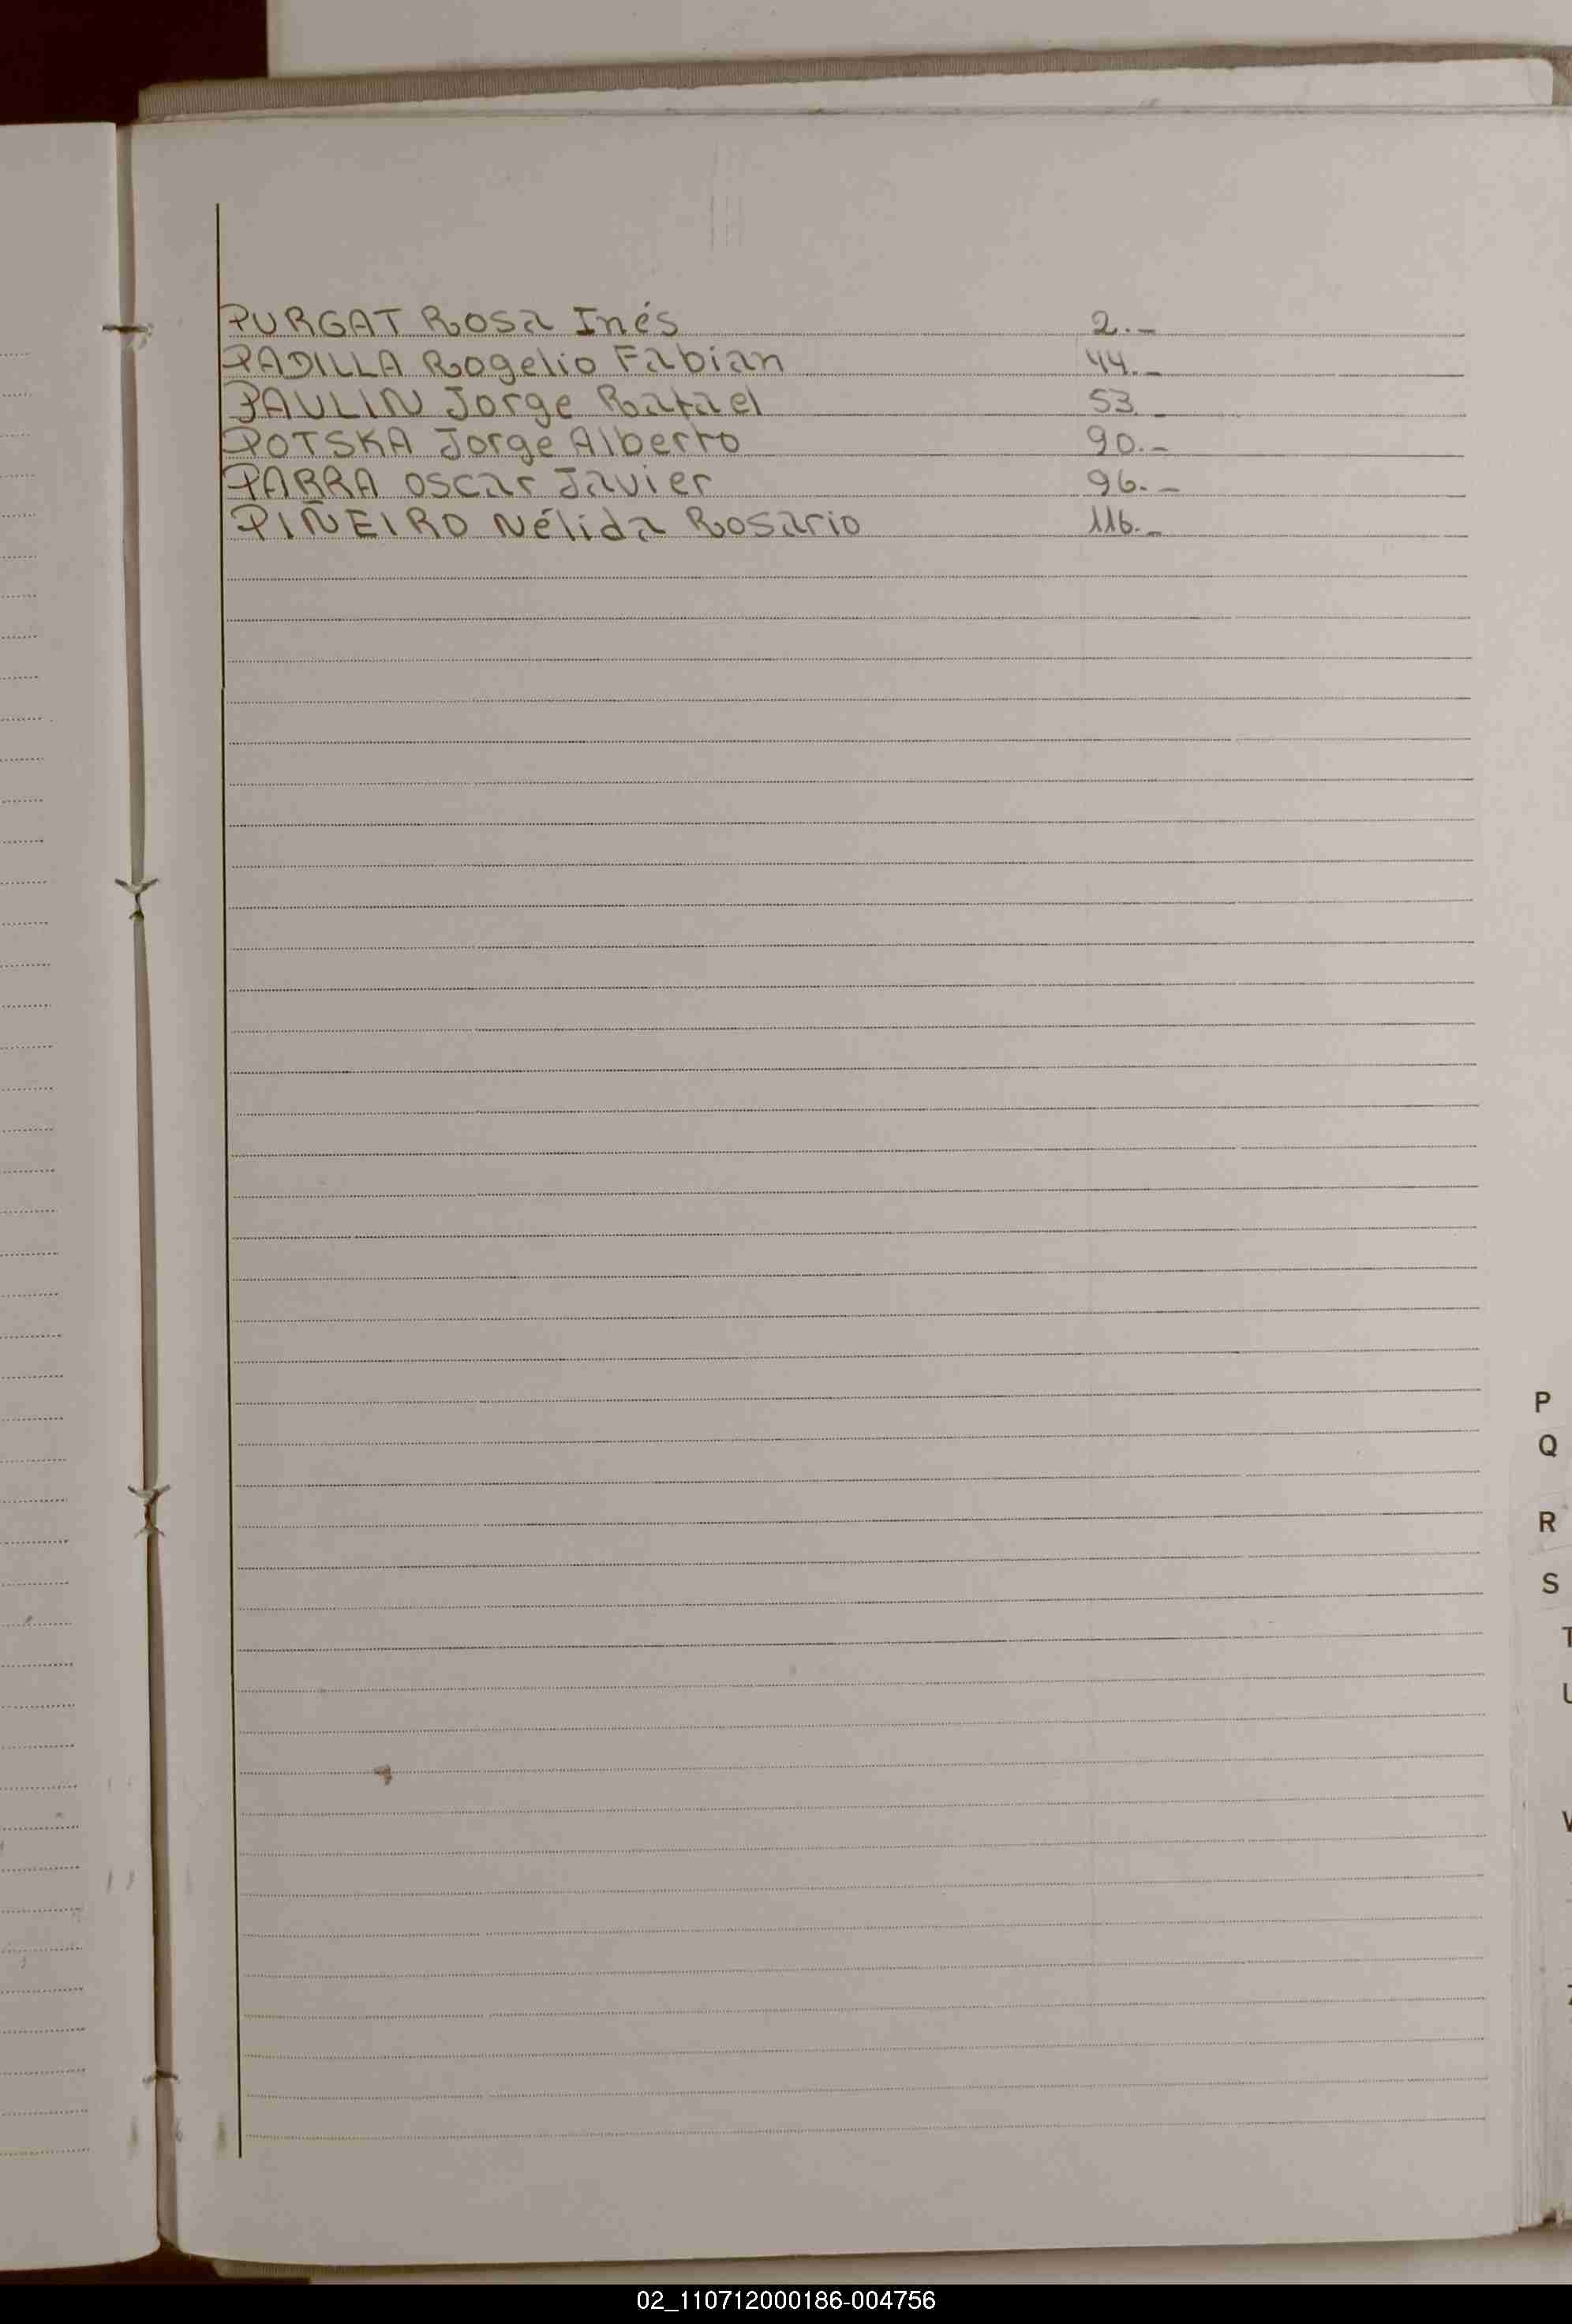 PURGAT Rosa Inés 2.-
PADILLA Rogelio Fabian 44.-
PAULIN Jorge Rafael 53.-
POTSKA Jorge Alberto 90.-
PARRA Oscar Javier 96.-
PIÑEIRO Nélida Rosario 116.-
P
Q
R
S
T
U
V
Z
02_110712000186-004756